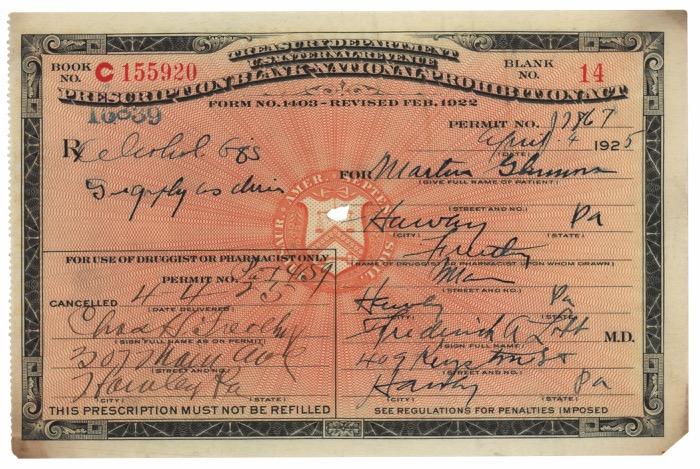 TREASURY DEPARTMENT
U.S. INTERNAL REVENUE
BOOK NO. C 155920
BLANK NO. 14
PRESCRIPTION BLANK-NATIONAL PROHIBITION ACT
FORM NO. 1403 - REVISED FEB. 1922
16839
PERMIT NO.
April 4 1925
(DATE)
Rx Alcohol
FOR Martin
(GIVE FULL NAME OF PATIENT)
(STREET AND NO.)
Hawley Pa
(CITY) (STATE)
(NAME OF DRUGGIST OR PHARMACIST ON WHOM DRAWN)
(STREET AND NO.)
Hawley Pa
(CITY) (STATE)
Frederick A M.D.
(SIGN FULL NAME)
409 St
(STREET AND NO.)
Hawley Pa
(CITY) (STATE)
SEE REGULATIONS FOR PENALTIES IMPOSED
FOR USE OF DRUGGIST OR PHARMACIST ONLY
PERMIT NO.
CANCELLED 4-4-25
(DATE DELIVERED)
Chas H
(SIGN FULL NAME AS ON PERMIT)
307 Main Ave
(STREET AND NO.)
Hawley Pa
(CITY) (STATE)
THIS PRESCRIPTION MUST NOT BE REFILLED